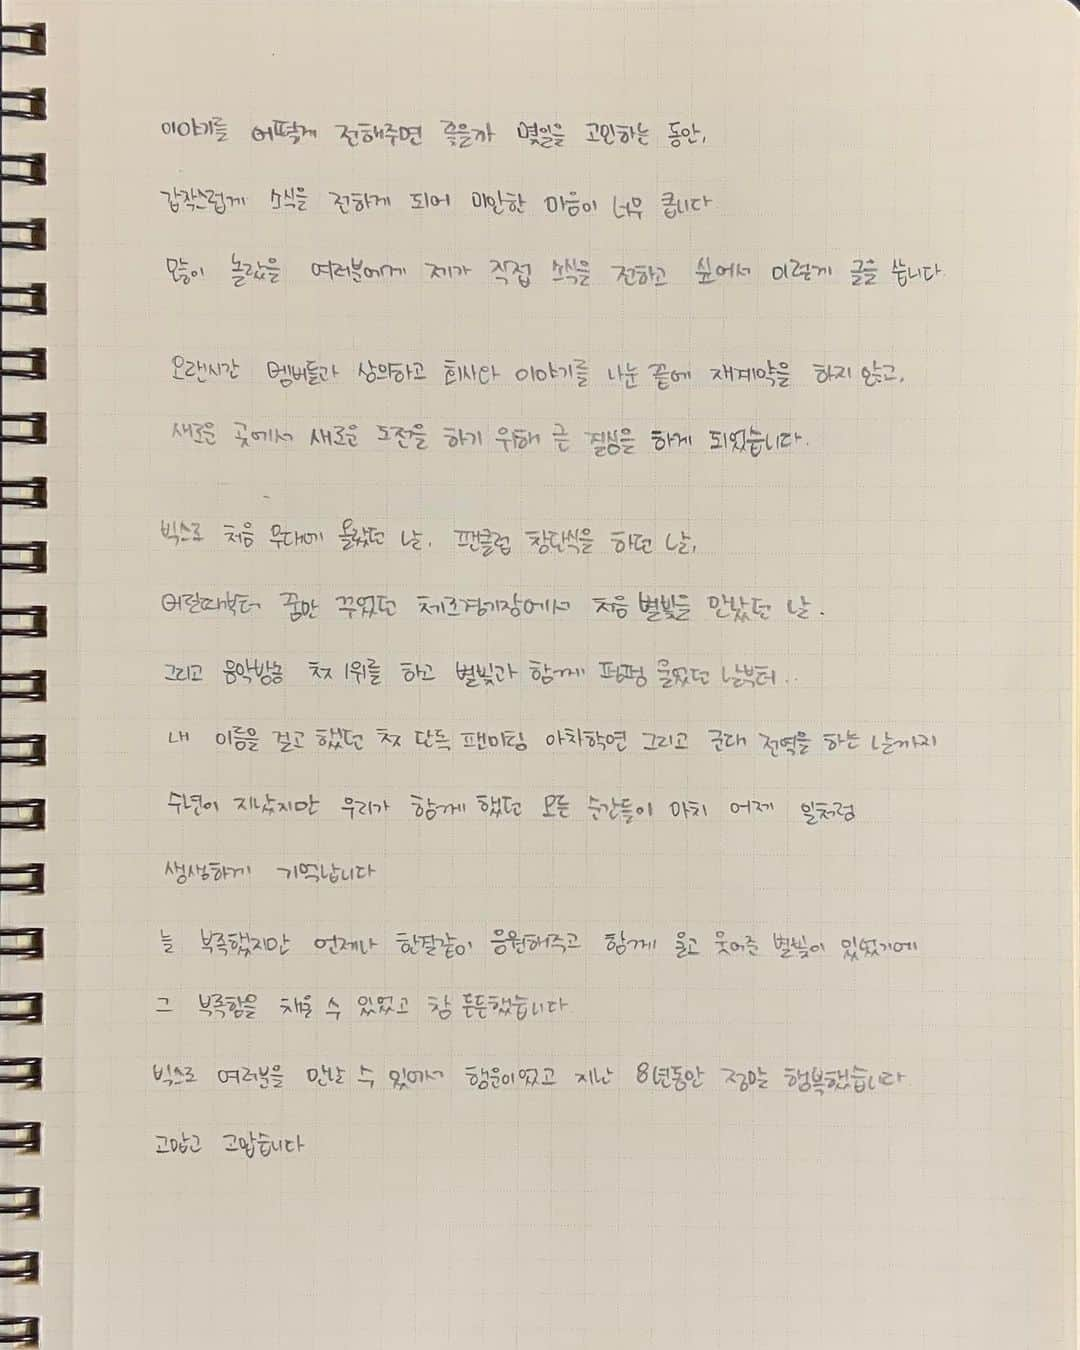 이야기를 어떻게 전해주면 좋을까 몇일을 고민하는 동안,
갑작스럽게 소식을 전하게 되어 미안한 마음이 너무 큽니다
많이 놀랐을 여러분에게 제가 직접 소식을 전하고 싶어서 이렇게 글을 씁니다.
오랜시간 멤버들과 상의하고 회사와 이야기를 나눈 끝에 재계약을 하지 않고,
새로운 곳에서 새로운 도전을 하기 위해 큰 결심을 하게 되었습니다.
빅스로 처음 무대에 올랐던 날, 팬클럽 창단식을 하던 날,
어릴때부터 꿈만 꾸었던 체조경기장에서 처음 별빛을 만났던 날.
그리고 음악방송 첫 1위를 하고 별빛과 함께 펑펑 울었던 날부터..
내 이름을 걸고 했던 첫 단독 팬미팅 아차학연 그리고 군대 전역을 하는 날까지
수년이 지났지만 우리가 함께 했던 모든 순간들이 마치 어제 일처럼
생생하게 기억납니다
늘 부족했지만 언제나 한결같이 응원해주고 함께 울고 웃어준 별빛이 있었기에
그 부족함을 채울 수 있었고 참 든든했습니다
빅스로 여러분을 만날 수 있어서 행운이었고 지난 8년동안 정말 행복했습니다
고맙고 고맙습니다